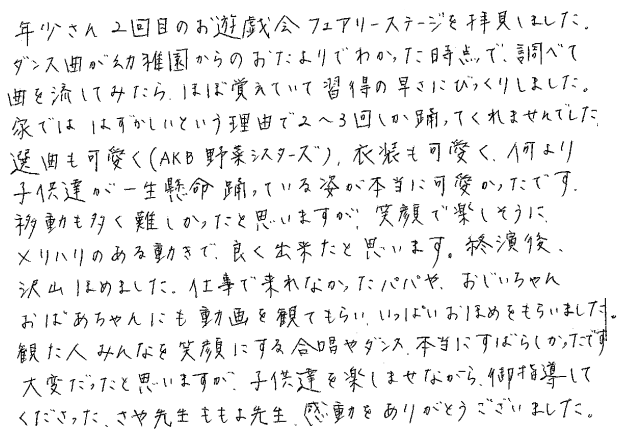 年少さん 2回目のお遊戯会 フェアリーステージを拝見しました。
ダンス曲が幼稚園からのおたよりでわかった時点で、調べて
曲を流してみたら、ほぼ覚えていて習得の早さにびっくりしました。
家では はずかしいという理由で2〜3回しか踊ってくれませんでした
選曲も可愛く(AKB 野菜シスターズ)、衣装も可愛く、何より
子供達が一生懸命 踊っている姿が本当に可愛かったです.
移動も多く難しかったと思いますが、笑顔で楽しそうに
メリハリのある動きで、良く出来たと思います。終演後、
沢山ほめました。仕事で来れなかったパパや、おじいちゃん
おばあちゃんにも動画を観てもらい、いっぱいおほめをもらいました。
観た人みんなを笑顔にする合唱やダンス、本当にすばらしかったです
大変だったと思いますが、子供達を楽しませながら、御指導して
くださった、さや先生ももよ先生、感動をありがとうございました。